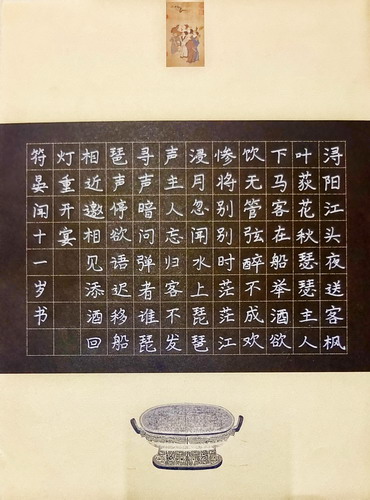 浔阳江头夜送客枫
叶荻花秋瑟瑟主人
下马客在船举酒欲
饮无管弦醉不成欢
惨将别别时茫茫江
浸月忽闻水上琵琶
声主人忘归客不发
寻声暗问弹者谁琵
琶声停欲语迟移船
相近邀相见添酒回
灯重开宴
符晏闻十一岁书